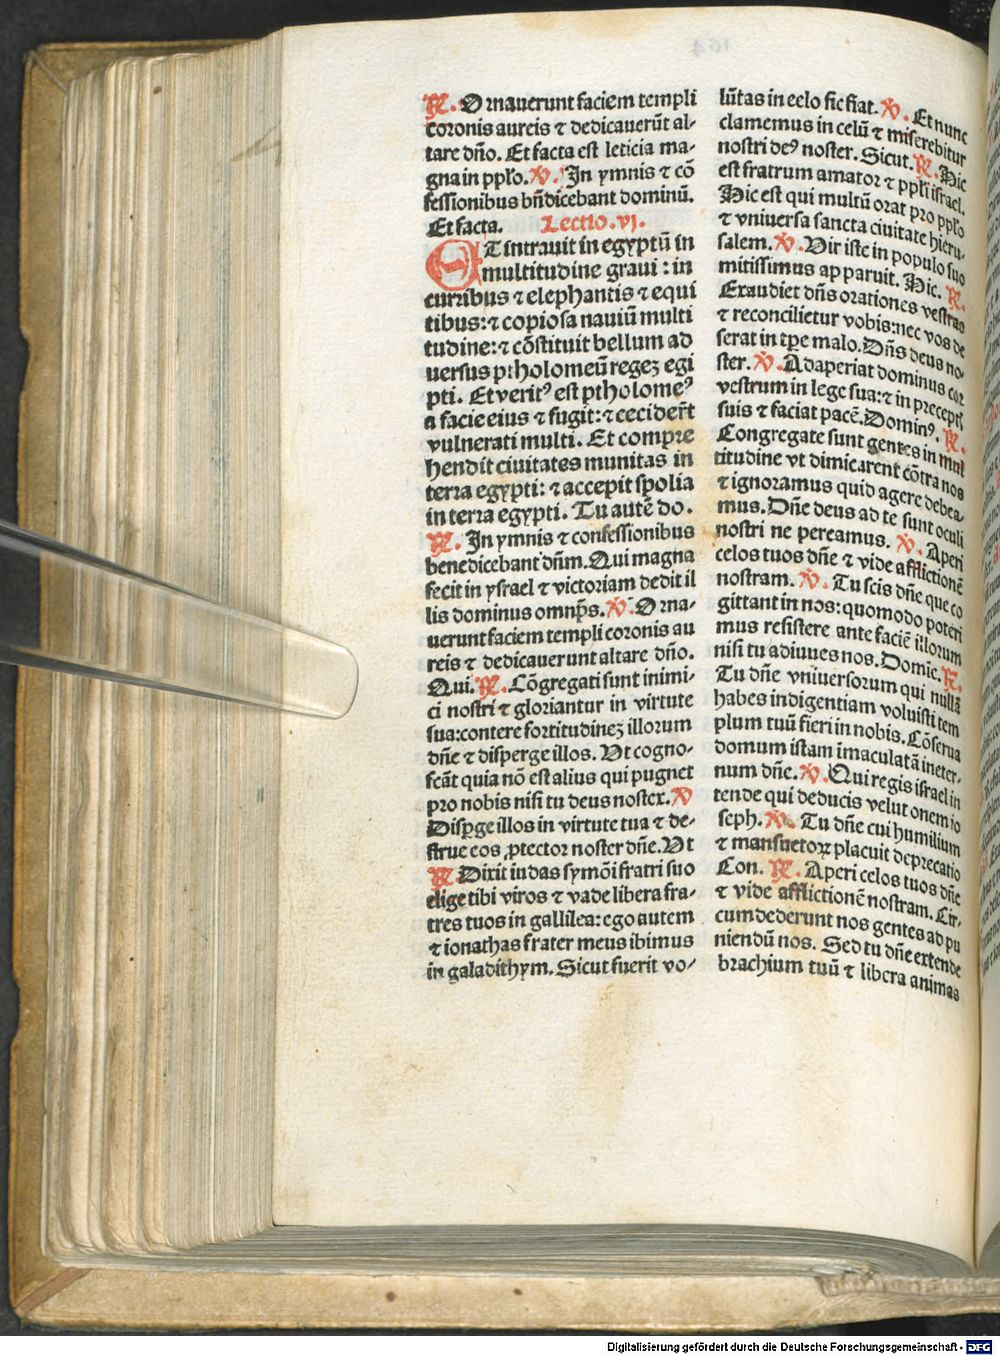 ℟. Ornauerunt faciem templi
coronis aureis ⁊ dedicauerūt al⸗
tare dño. Et facta est leticia ma⸗
gna in pplo. ℣. In ymnis ⁊ cō
fessionibus bñdicebant dominū.
Et facta. Lectio. vj.
ET intrauit in egyptū in
multitudine graui: in
curribus ⁊ elephantis ⁊ equi
tibus: ⁊ copiosa nauiū multi
tudine: ⁊ cōstituit bellum ad
uersus ptholomeū regez egi
pti. Et veritꝰ est ptholomeꝰ
a facie eius ⁊ fugit: ⁊ ceciderūt
vulnerati multi. Et compre
hendit ciuitates munitas in
terra egypti: ⁊ accepit spolia
in terra egypti. Tu autē do.
℟. In ymnis ⁊ confessionibus
benedicebant dñm. Qui magna
fecit in ysrael ⁊ victoriam dedit il
lis dominus omnp̄s. ℣. Orna⸗
uerunt faciem templi coronis au
reis ⁊ dedicauerunt altare dño.
Qui. ℟. Cōgregati sunt inimi⸗
ci nostri ⁊ gloriantur in virtute
sua: contere fortitudinez illorum
dñe ⁊ disperge illos. Vt cogno⸗
scāt quia nō est alius qui pugnet
pro nobis nisi tu deus noster. ℣
Disꝑge illos in virtute tua ⁊ de⸗
strue eos ꝓtector noster dñe. Vt
℟ Dixit iudas symōi fratri suo
elige tibi viros ⁊ vade libera fra⸗
tres tuos in gallilea: ego autem
⁊ ionathas frater meus ibimus
in galadithym. Sicut fuerit vo⸗
lūtas in celo sic fiat. ℣. Et nunc
clamemus in celū ⁊ miserebitur
nostri deꝰ noster. Sicut. ℟. Hic
est fratrum amator ⁊ ppli israel.
Hic est qui multū orat pro pplo
⁊ vniuersa sancta ciuitate hieru⸗
salem. ℣. Vir iste in populo suo
mitissimus apparuit. Hic. ℟.
Exaudiet dñs orationes vestras
⁊ reconcilietur vobis: nec vos de
serat in tꝑe malo. Dñs deus no⸗
ster. ℣. Adaperiat dominus cor
vestrum in lege sua: ⁊ in precepti
suis ⁊ faciat pacē. Dominꝰ. ℟.
Congregate sunt gentes in mul
titudine vt dimicarent cōtra nos
⁊ ignoramus quid agere debea⸗
mus. Dñe deus ad te sunt oculi
nostri ne pereamus. ℣. Aperi
celos tuos dñe ⁊ vide afflictionē
nostram. ℣. Tu scis dñe que co
gittant in nos: quomodo poteri
mus resistere ante faciē illorum
nisi tu adiuues nos. Domīe. ℟.
Tu dñe vniuersorum qui nullā
habes indigentiam voluisti tem
plum tuū fieri in nobis. Cōserua
domum istam īmaculatā ineter⸗
num dñe. ℣. Qui regis israel in
tende qui deducis velut onem io
seph. ℣. Tu dñe cui humilium
⁊ mansuetoꝝ placuit deprecatio
Con. ℟. Aperi celos tuos dñe
⁊ vide afflictionē nostram. Cir⸗
cumdederunt nos gentes ad pu
niendū nos. Sed tu dñe extende
brachium tuū ⁊ libera animas
Digitalisierung gefördert durch die Deutsche Forschungsgemeinschaft - DFG